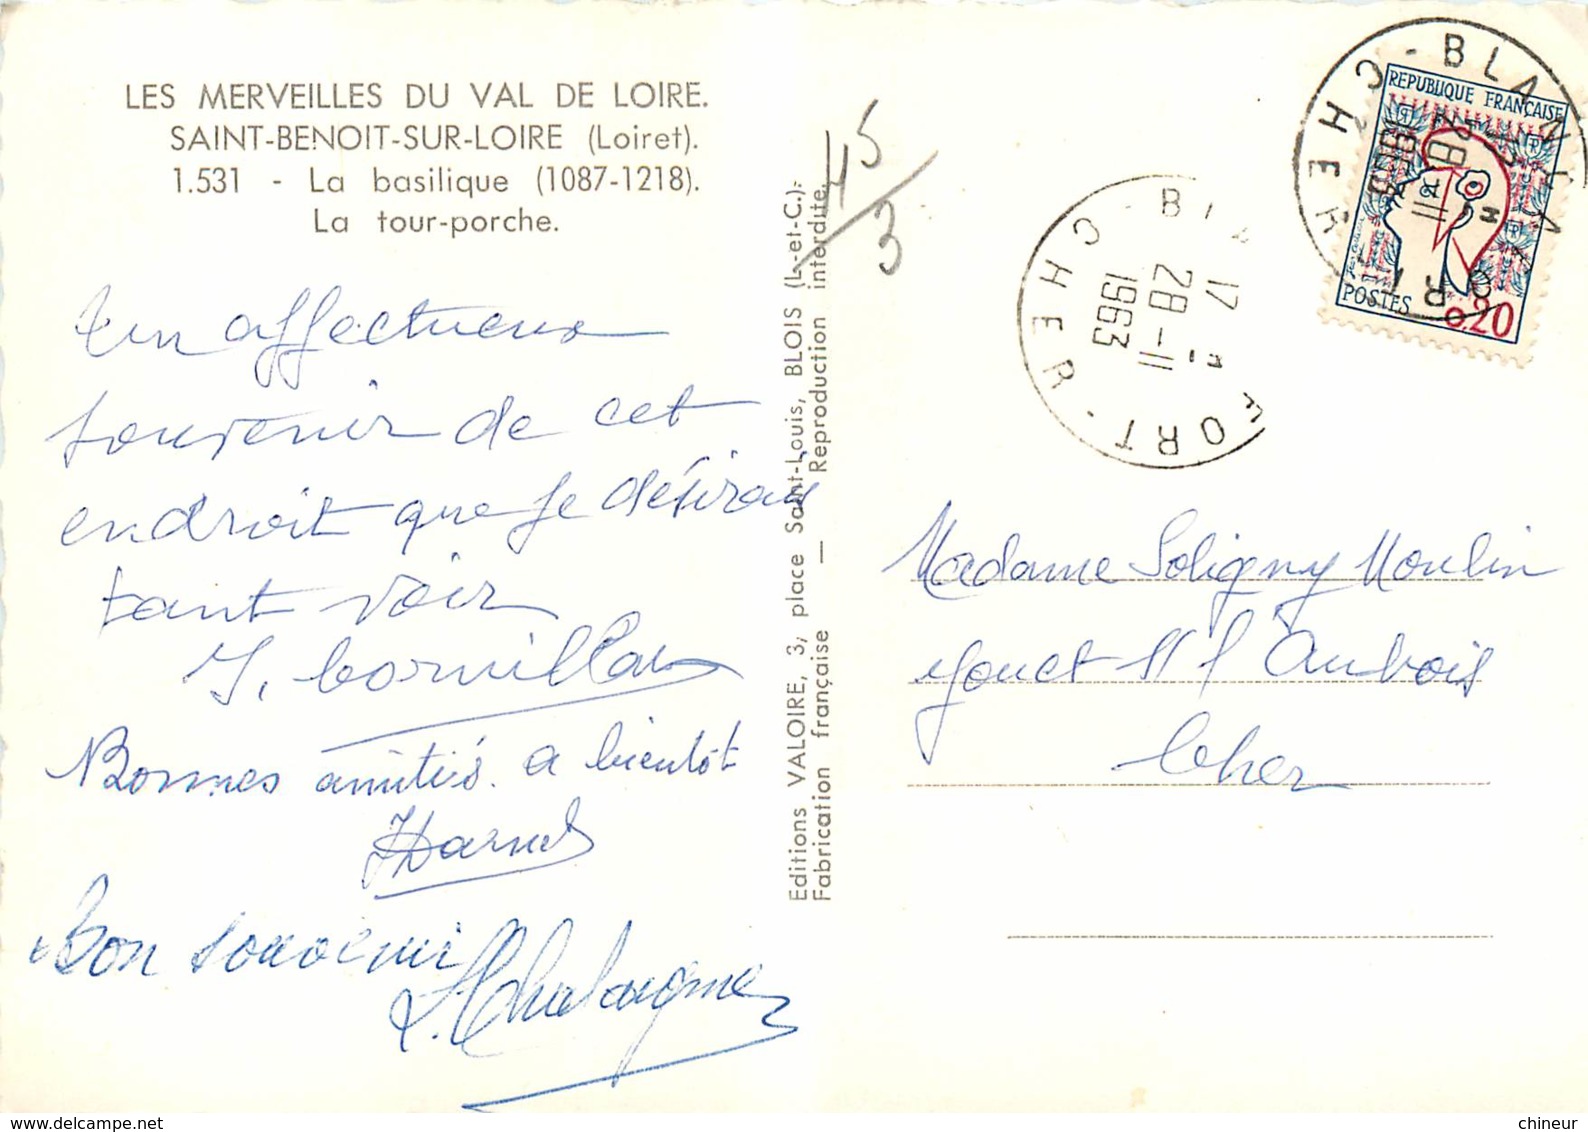 LES MERVEILLES DU VAL DE LOIRE.
SAINT-BENOIT-SUR-LOIRE (Loiret).
1.531 - La basilique (1087-1218).
La tour-porche.
Un affectueux
souvenir de cet
endroit que je désirais
tant voir
Bonnes amitiés. a bientôt
Bon souvenir
Editions VALOIRE, 3, place Saint-Louis, BLOIS (L.-et-C.).
Fabrication française — Reproduction interdite.
45/3
17 H
28-11
1963
CHER
FORT
REPUBLIQUE FRANÇAISE
POSTES
0,20
BLANCAFORT
CHER
28-11
1963
Madame Soligny Moulin
Jouet s/ l'Aubois
Cher
chineur
www.delcampe.net